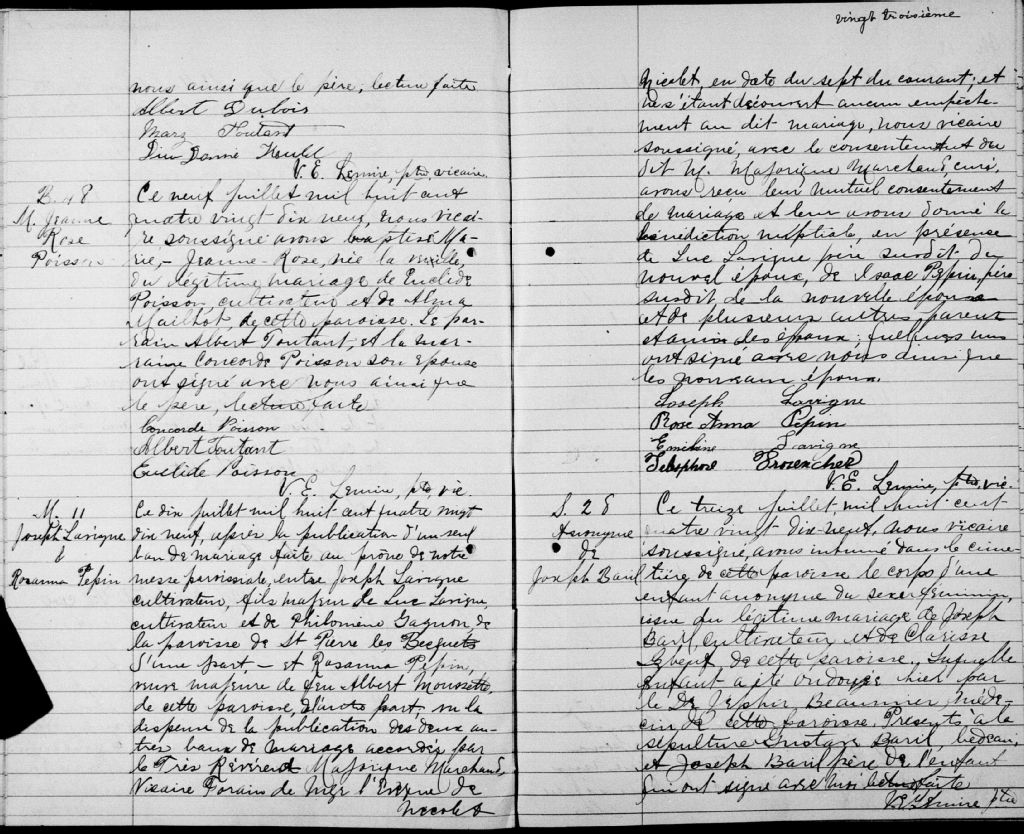 nous ainsi que le père, lecture faite
Albert Dubois
Mary Toutant
Dieu Donné Heubl
V. E. Lemire, ptre, vicaire.
B. 48
M. Jeanne
Rose
Poisson
Ce neuf juillet mil huit cent
quatre vingt dix neuf, nous vicai-
re soussigné avons baptisé Ma-
rie, - Jeanne - Rose, née la veille,
du légitime mariage de Euclide
Poisson, cultivateur et de Alma
Mailhot, de cette paroisse. Le par-
rain Albert Toutant et la mar-
raine Concorde Poisson son épouse
ont signé avec nous ainsi que
le père, lecture faite
Concorde Poisson
Albert Toutant
Euclide Poisson
V. E. Lemire, ptre vic.
M. 11
Joseph Lavigne
&
Rosanna Pepin
Ce dix juillet mil huit cent quatre vingt
dix neuf, après la publication d'un seul
ban de mariage faite au prône de notre
messe paroissiale, entre Joseph Lavigne
cultivateur, fils majeur de Luc Lavigne,
cultivateur et de Philomène Gagnon de
la paroisse de St Pierre les Becquets
d'une part, - et Rosanna Pepin,
veuve majeure de feu Albert Moussette,
de cette paroisse, d'autre part, vu la
dispense de la publication des deux au-
tres bans de mariage accordée par
le Très Révérend Majorique Marchand,
Vicaire Forain de Mgr l'Evêque de
Nicolet
vingt troisième
Nicolet, en date du sept du courant; et
ne s'étant découvert aucun empêche-
ment au dit mariage, nous vicaire
soussigné, avec le consentement du
dit M. Majorique Marchand, curé,
avons reçu leur mutuel consentement
de mariage et leur avons donné la
bénédiction nuptiale, en présence
de Luc Lavigne père susdit du
nouvel époux, de Isaac Pepin, père
susdit de la nouvelle épouse
et de plusieurs autres, parents
et amis des époux; quelques uns
ont signé avec nous ainsi que
les nouveaux époux.
Joseph Lavigne
Rose Anna Pepin
Emeline Lavigne
Telesphore Provencher
V. E. Lemire, ptre, vic.
S. 28
Anonyme
de
Joseph Baril
Ce treize juillet, mil huit cent
quatre vingt dix-neuf, nous vicaire
soussigné, avons inhumé dans le cime-
tière de cette paroisse le corps d'une
enfant anonyme du sexe féminin,
issue du légitime mariage de Joseph
Baril, cultivateur et de Clarisse
Lebeuf, de cette paroisse, laquelle
enfant a été ondoyée hier par
le Dr Zéphir Beaumier, méde-
cin de cette paroisse. Présents à la
sépulture Gustave Baril, bedeau,
et Joseph Baril père de l'enfant
qui ont signé avec moi lecture faite
V. E. Lemire ptre